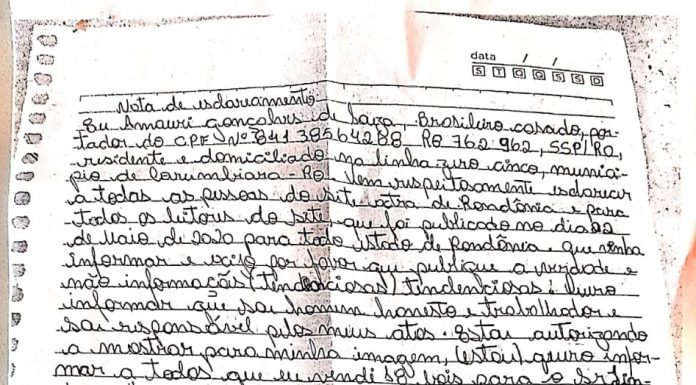 data / /
S T Q Q S S D
Nota de esclareamento
Eu Amauri gonçalves de Souza, Brasileiro casado, por-
tador do CPF Nº 84138564288 RG 762 962, SSP/RO,
residente e domiciliado na linha zero cinco, municí-
pio de Corumbiara - RO. Vem respeitosamente esclarecer
a todas as pessoas do site extra de Rondônia e para
todos os leitores do site que foi publicado no dia 22
de Maio de 2020 para todo estado de Rondônia. que venha
informar e exijo por favor que publique a verdade e
não informações (tendenciosas) tindenciosas! Quero
informar que sou homem honesto e trabalhador e
sou responsável pelos meus atos. Estou autorizando
a mostrar para minha imagem, (estou) quero infor-
mar a todos que eu vendi 18 bois para o Sr